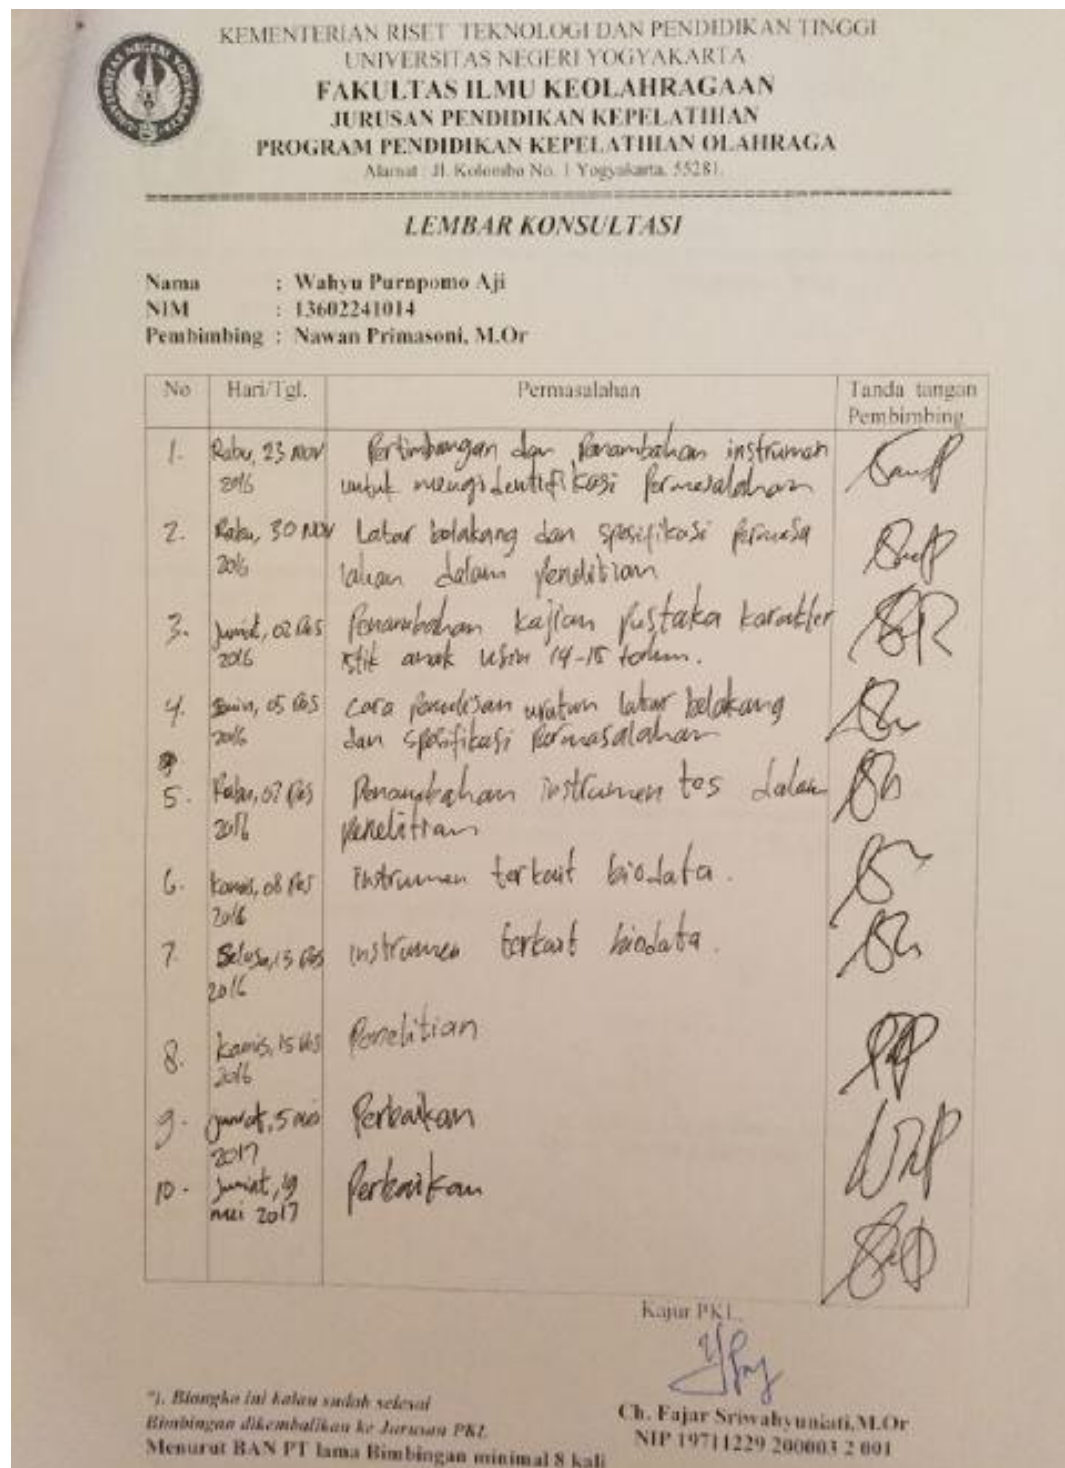 KEMENTERIAN RISET TEKNOLOGI DAN PENDIDIKAN TINGGI
UNIVERSITAS NEGERI YOGYAKARTA
FAKULTAS ILMU KEOLAHRAGAAN
JURUSAN PENDIDIKAN KEPELATIHAN
PROGRAM PENDIDIKAN KEPELATIHAN OLAHRAGA
Alamat : Jl. Kolombo No. 1 Yogyakarta. 55281.
LEMBAR KONSULTASI
Nama : Wahyu Purnpomo Aji
NIM : 13602241014
Pembimbing : Nawan Primasoni, M.Or
No Hari/Tgl. Permasalahan Tanda tangan
Pembimbing
1. Rabu, 23 Nov Pertimbangan dan Penambahan instrumen
2016 untuk mengidentifikasi Permasalahan
2. Rabu, 30 Nov Latar belakang dan spesifikasi permasa
2016 lahan dalam penelitian
3. Jumat, 02 Des Penambahan kajian pustaka karakter
2016 istik anak usia 14-15 tahun.
4. Senin, 05 Des cara penulisan uratun latar belakang
2016 dan spesifikasi Permasalahan
5. Rabu, 07 Des Penambahan instrumen tes dalam
2016 penelitian
6. Kamis, 08 Des instrumen terkait biodata.
2016
7. Selasa, 13 Des instrumen terkait biodata.
2016
8. Kamis, 15 Des Penelitian
2016
9. Jumat, 5 Mei Perbaikan
2017
10. Jumat, 19 Perbaikan
mei 2017
Kajur PKL.
*). Blangko ini kalau sudah selesai
Bimbingan dikembalikan ke Jurusan PKL
Menurut BAN PT lama Bimbingan minimal 8 kali
Ch. Fajar Sriwahyuniati, M.Or
NIP 19711229 200003 2 001